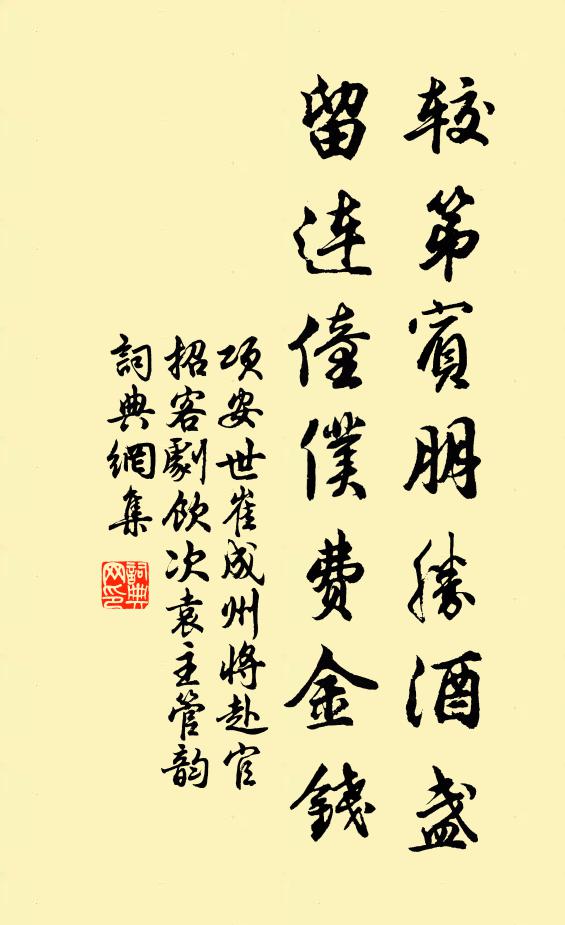 较第賓朋勝酒盞
留連僮僕費金錢
項安世崔成州将赴官
招客劇飲次袁主管韵
詞典網集
詞典网印